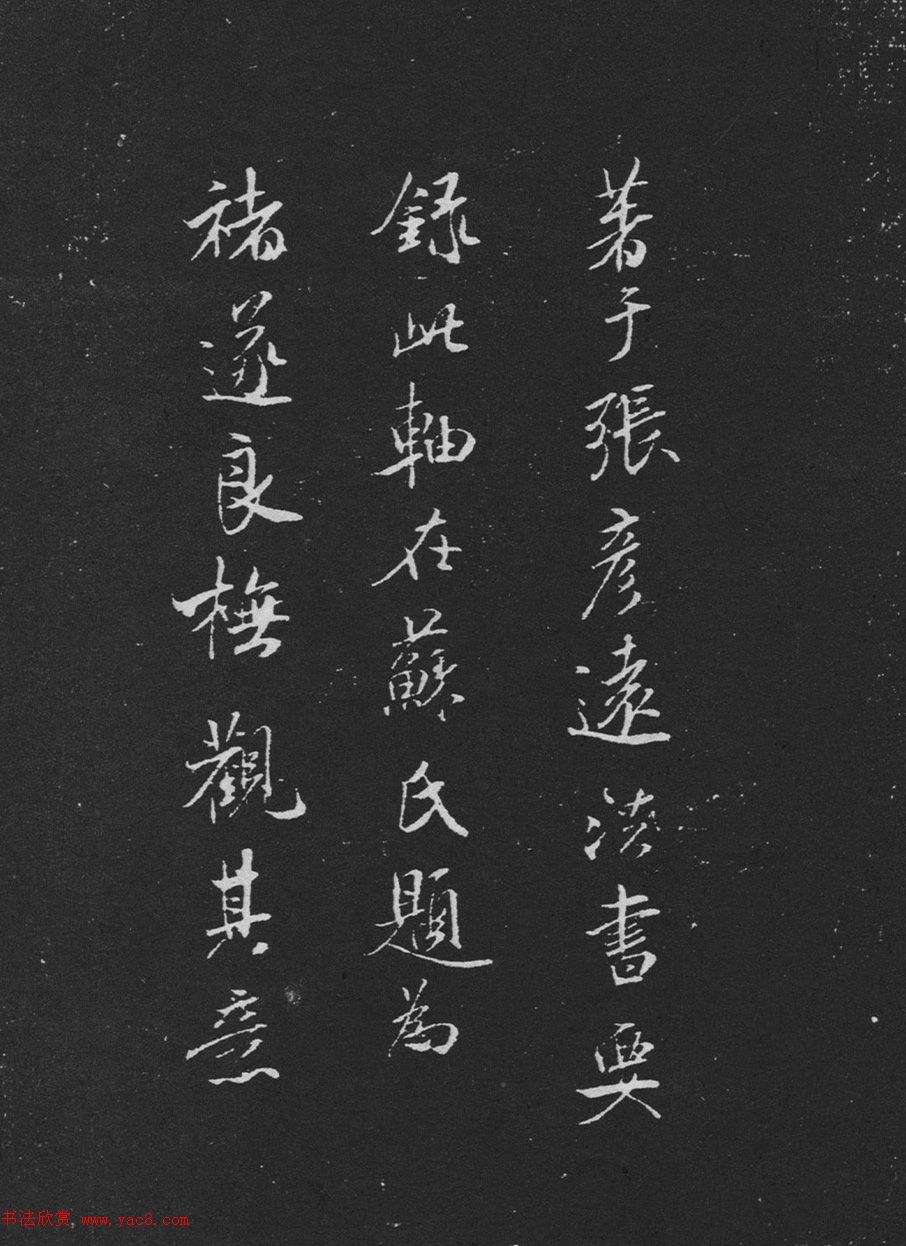 著于張彦遠法書要
録此軸在蘇氏題為
褚遂良橅觀其意
书法欣赏 www.yac8.com